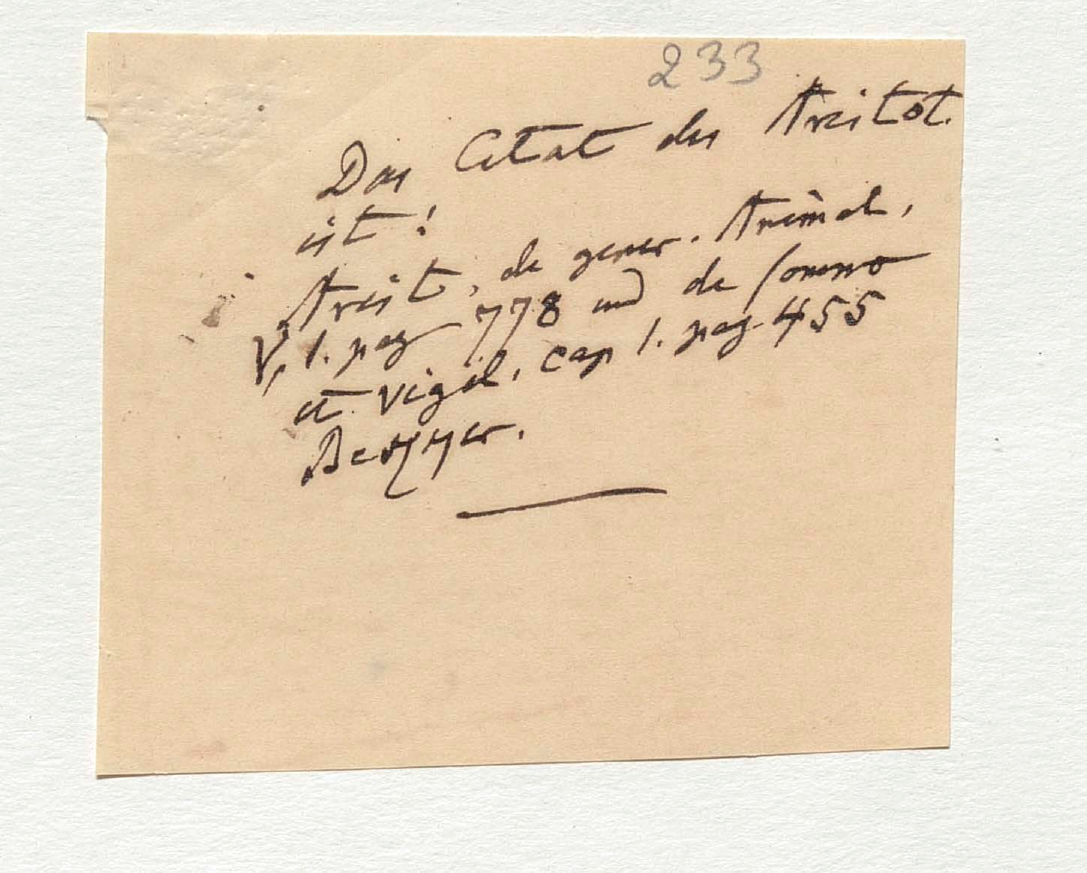 233
Das Citat des Aristot.
ist!
Arist, de gener. Animal,
V, 1. pag 778 und de somno
et vigil, cap 1. pag. 455